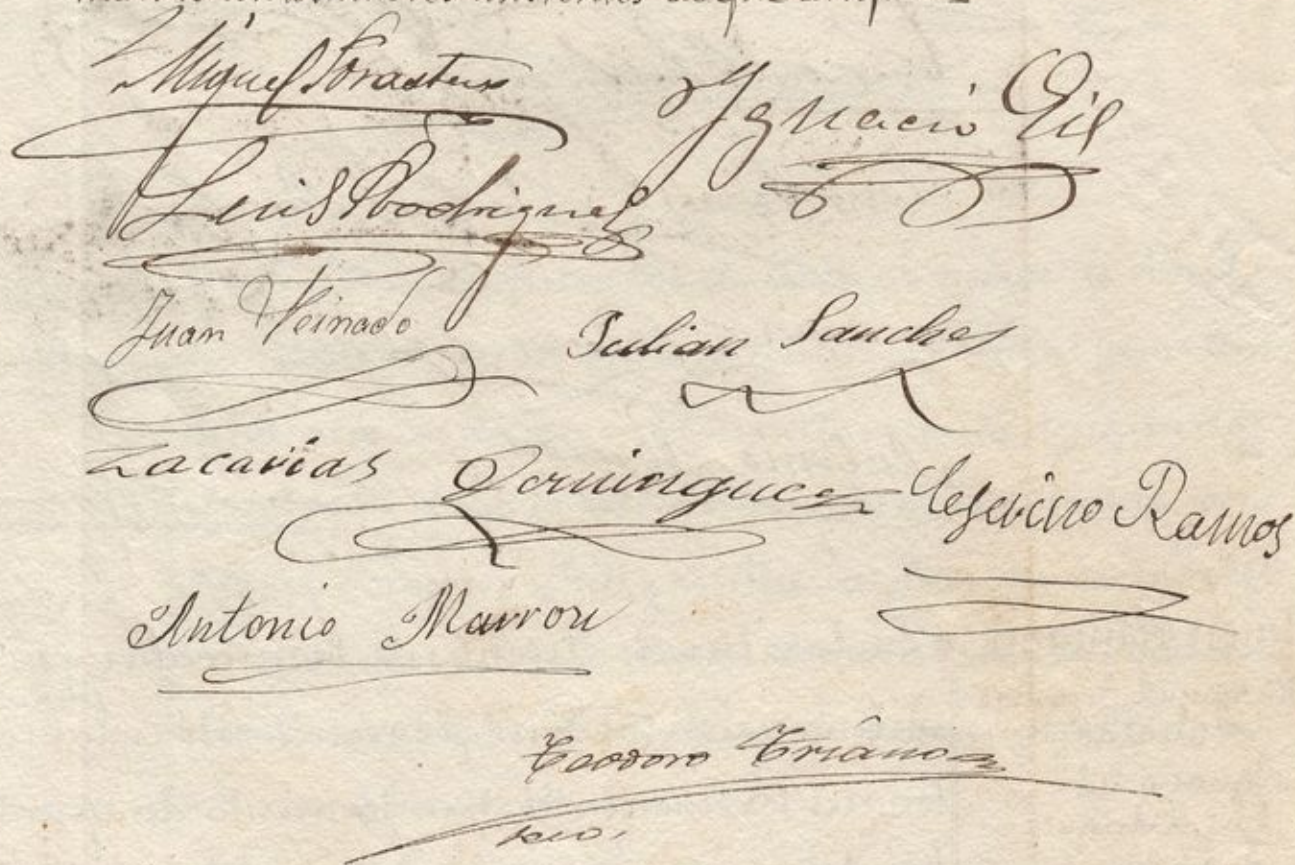 Miguel Forastero
Ignacio Gil
Luis Rodriguez
Juan Peinado
Julian Sanchez
Zacarias Dominguez
Ceferino Ramos
Antonio Marron
Teodoro Triano